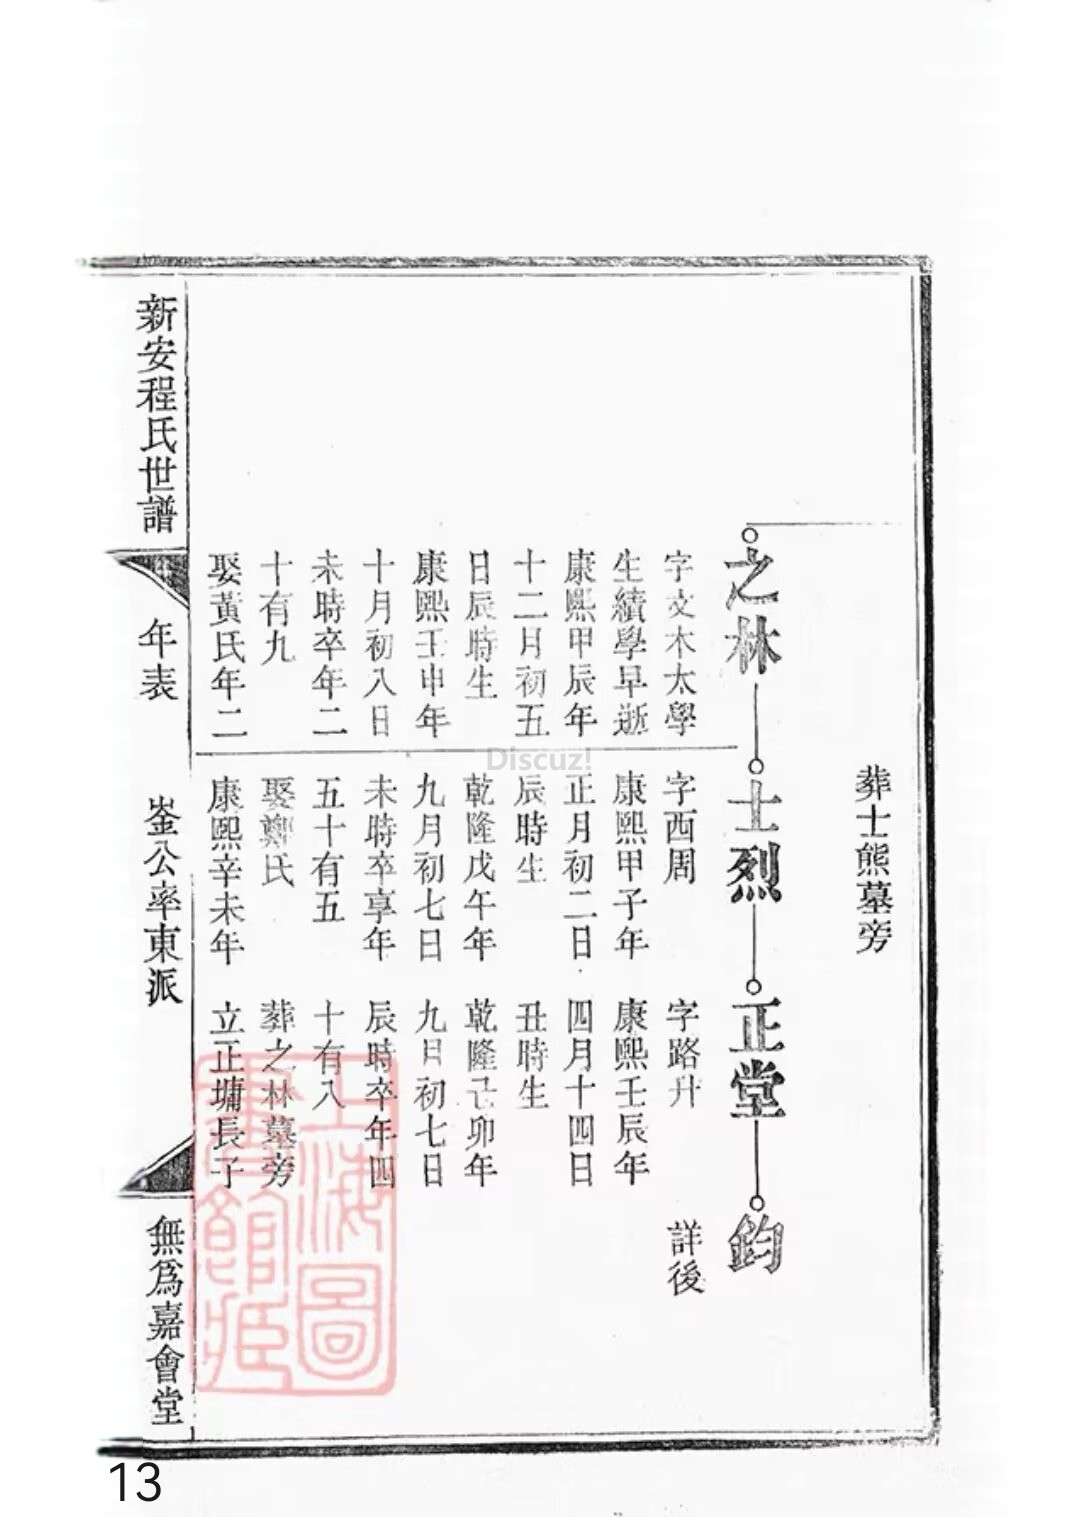 葬士熊墓旁
之林
士烈
正堂
鈞
字文木太學
生績學早逝
康熙甲辰年
十二月初五
日辰時生
康熙壬申年
十月初八日
未時卒年二
十有九
娶黃氏年二
字西周
康熙甲子年
正月初二日
辰時生
乾隆戊午年
九月初七日
未時卒享年
五十有五
娶鄭氏
康熙辛未年
字路升
康熙壬辰年
四月十四日
丑時生
乾隆己卯年
九日初七日
辰時卒年四
十有八
葬之林墓旁
立正墉長子
詳後
新安程氏世譜
年表
崟公率東派
無為嘉會堂
上海圖
書館藏
Discuz!
13